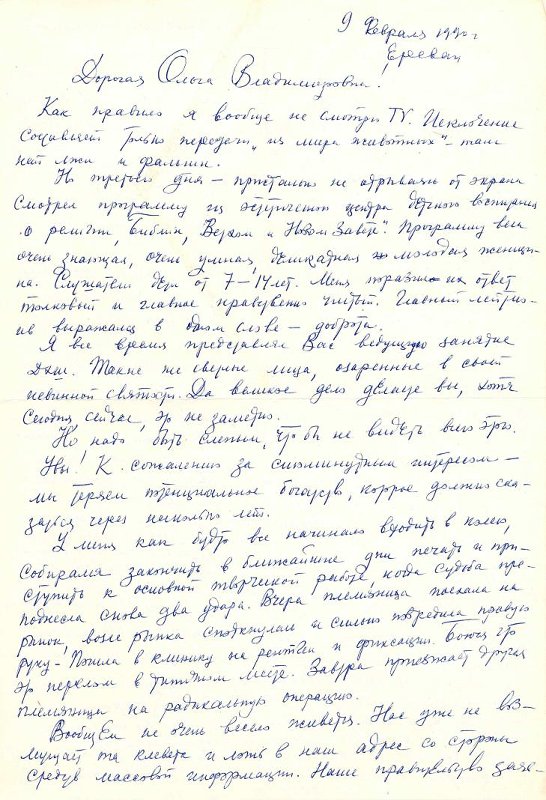 9 Февраля 1990 г
Ереван
Дорогая Ольга Владимировна!
Как правило я вообще не смотрю TV. Исключение
составляет только передачи „из мира животных" – там
нет лжи и фальши.
Но третьего дня – пристально не отрываясь от экрана
смотрел программу из эстетического центра детского воспитания
о религии, Библии, Ветхом и Новом Завете". Программу вела
очень знающая, очень умная, деликатная молодая женщи-
на. Слушатели дети от 7–14 лет. Меня поразило их ответ
толковый и главное нравственно чистый. Главный лейтмо-
тив выражался в одном слове – доброта.
Я все время представлял Вас ведущую занятие
Такие же светлые лица, озаренные в своей
невинной святости. Да великое дело делаете вы, хоть
сегодня сейчас, это не заметно.
Но надо быть слепым, что бы не видеть всего этого.
Увы! К сожалению за сиюминутным интересом –
мы теряем потенциальное богатство, которое должно ска-
заться через несколько лет.
У меня как будто все начинало входить в колею,
собирался закончить в ближайшие дни печать и при-
ступить к основной творческой работе, когда судьба пре-
поднесла снова два удара. Вчера племянница поехала на
рынок, возле рынка споткнулась и сильно повредила правую
руку – Пошла в клинику на рентген и фиксацию. Боюсь что
это перелом в Завтра приезжает другая
племянница на радикальную операцию.
Вообщем не очень весело живется. Нас уже не воз-
мущает та клевета и ложь в наш адрес со стороны
средств массовой информации. Наше правительство заяв-